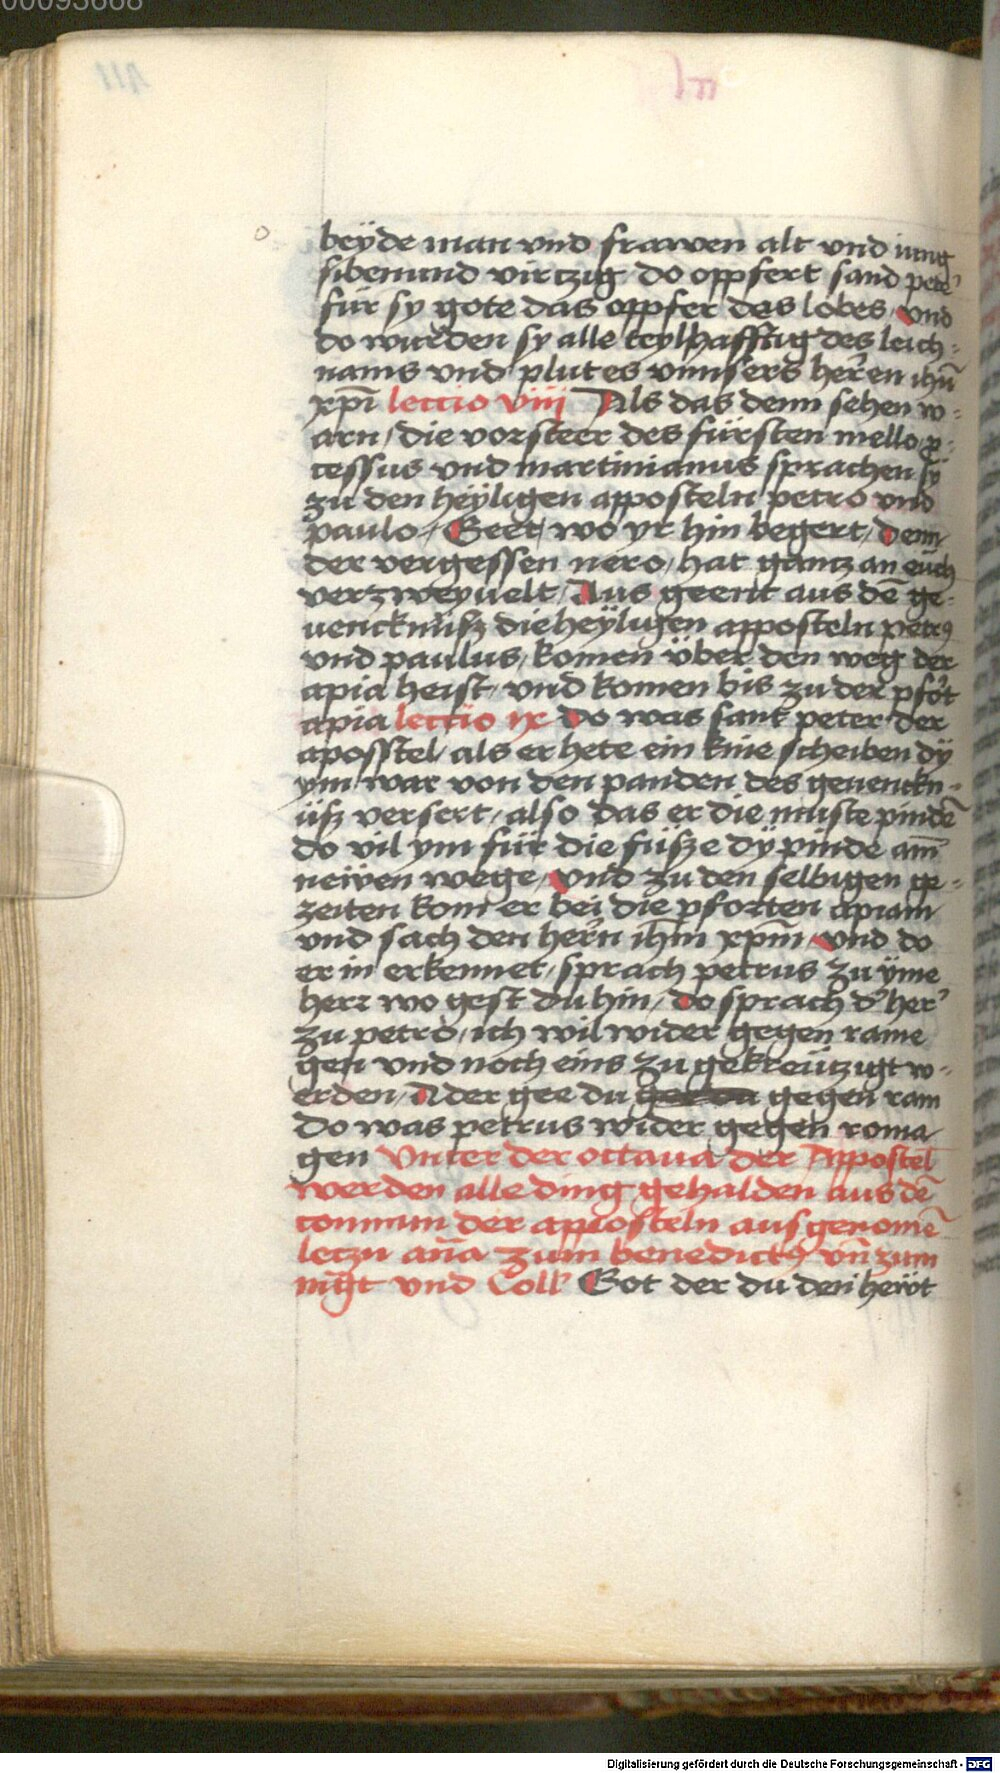 beÿde man vnd frawen alt vnd iung
sibenund virczig do oppfert sand pete᷑
für sy gote das oppfer des lobes, vnd
do wurden sy alle teylhafftig des leich-
nams vnd plutes vnnsers herren ihū
xpī lectio viij Als das denn sehen w-
arn, die vorsteer des fürsten mello, p-
cessus vnd martinianus sprachen sÿ
zu den heÿligen apposteln petro vnd
paulo, Geet, wo yr hin begert, denn
der vergessen nero, hat gantz an eüch
verzweyuelt, Aus geent aus dē ge-
uencknüsz die heÿligen apposteln petrꝰ
vnd paulus, komen über den weg der
apia heist, vnd komen bis zu der pfort
apia lectio ix Do was sant peter der
aposstel, als er hete ein knie scheiben dÿ
ym war von den panden des geuenckn-
üsz versert, also das er die muste pindē
do vil ym für die füsze dÿ pinde am̄
neẅen wege, vnd zu den selbigen ge-
zeiten kom er bei die pforten apiam
vnd sach den herrn ihm̄ xpm̄, vnd do
er in erkennet, sprach petrus zu ÿme
herr wo gest du hin, do sprach d᷑ her᷑
zu petro, ich wil wider gegen rame
gen vnd noch eins zu gekreützigt w-
erden, Ader gee du gegen ram
Do was petrus wider gegen roma
gen Vnter der octaua der Appostel
werden alle ding gehalden aus dē
commun der apposteln ausgenomē
letzu an̄a zum benedictꝰ vn̄ zum
mg̅t vnd Coll᷑ Got der du den heüt